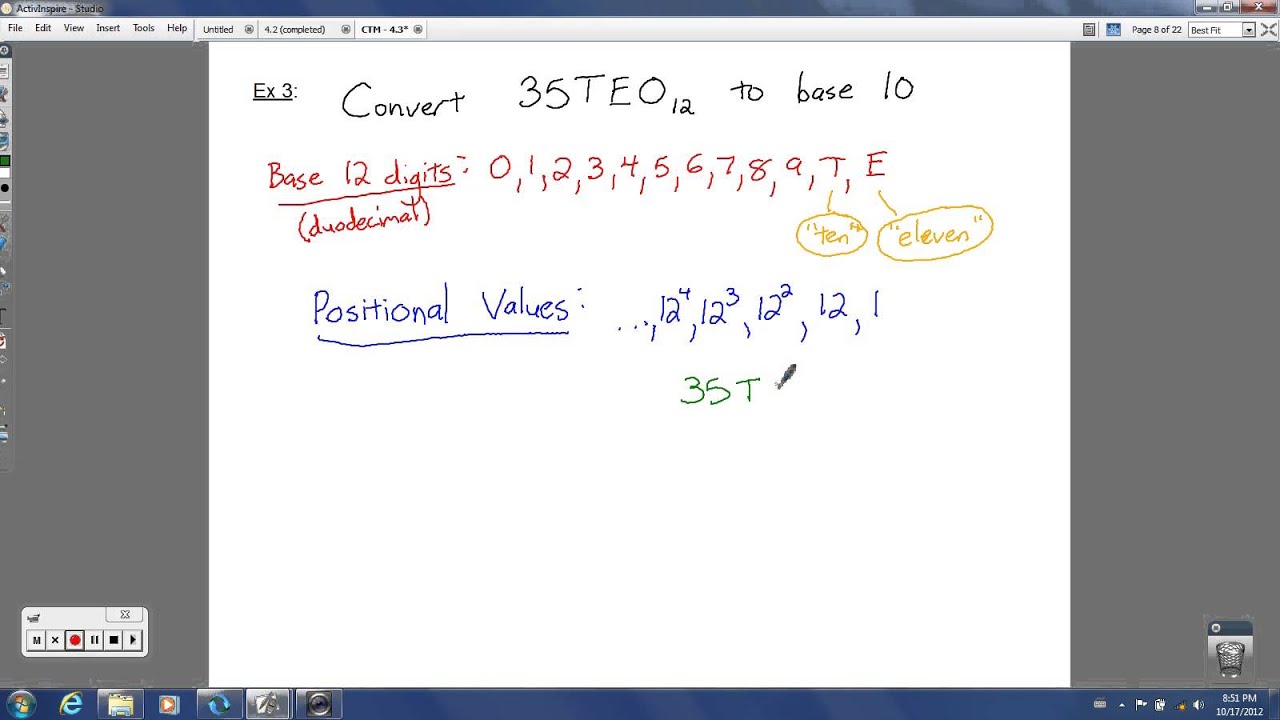 ActivInspire - Studio
File Edit View Insert Tools Help Untitled 4.2 (completed) CTM - 4.3* Page 8 of 22 Best Fit
Ex 3: Convert 35TE0₁₂ to base 10
Base 12 digits: 0, 1, 2, 3, 4, 5, 6, 7, 8, 9, T, E
(duodecimal) "ten" "eleven"
Positional Values: ..., 12⁴, 12³, 12², 12, 1
35T
M
8:51 PM
10/17/2012